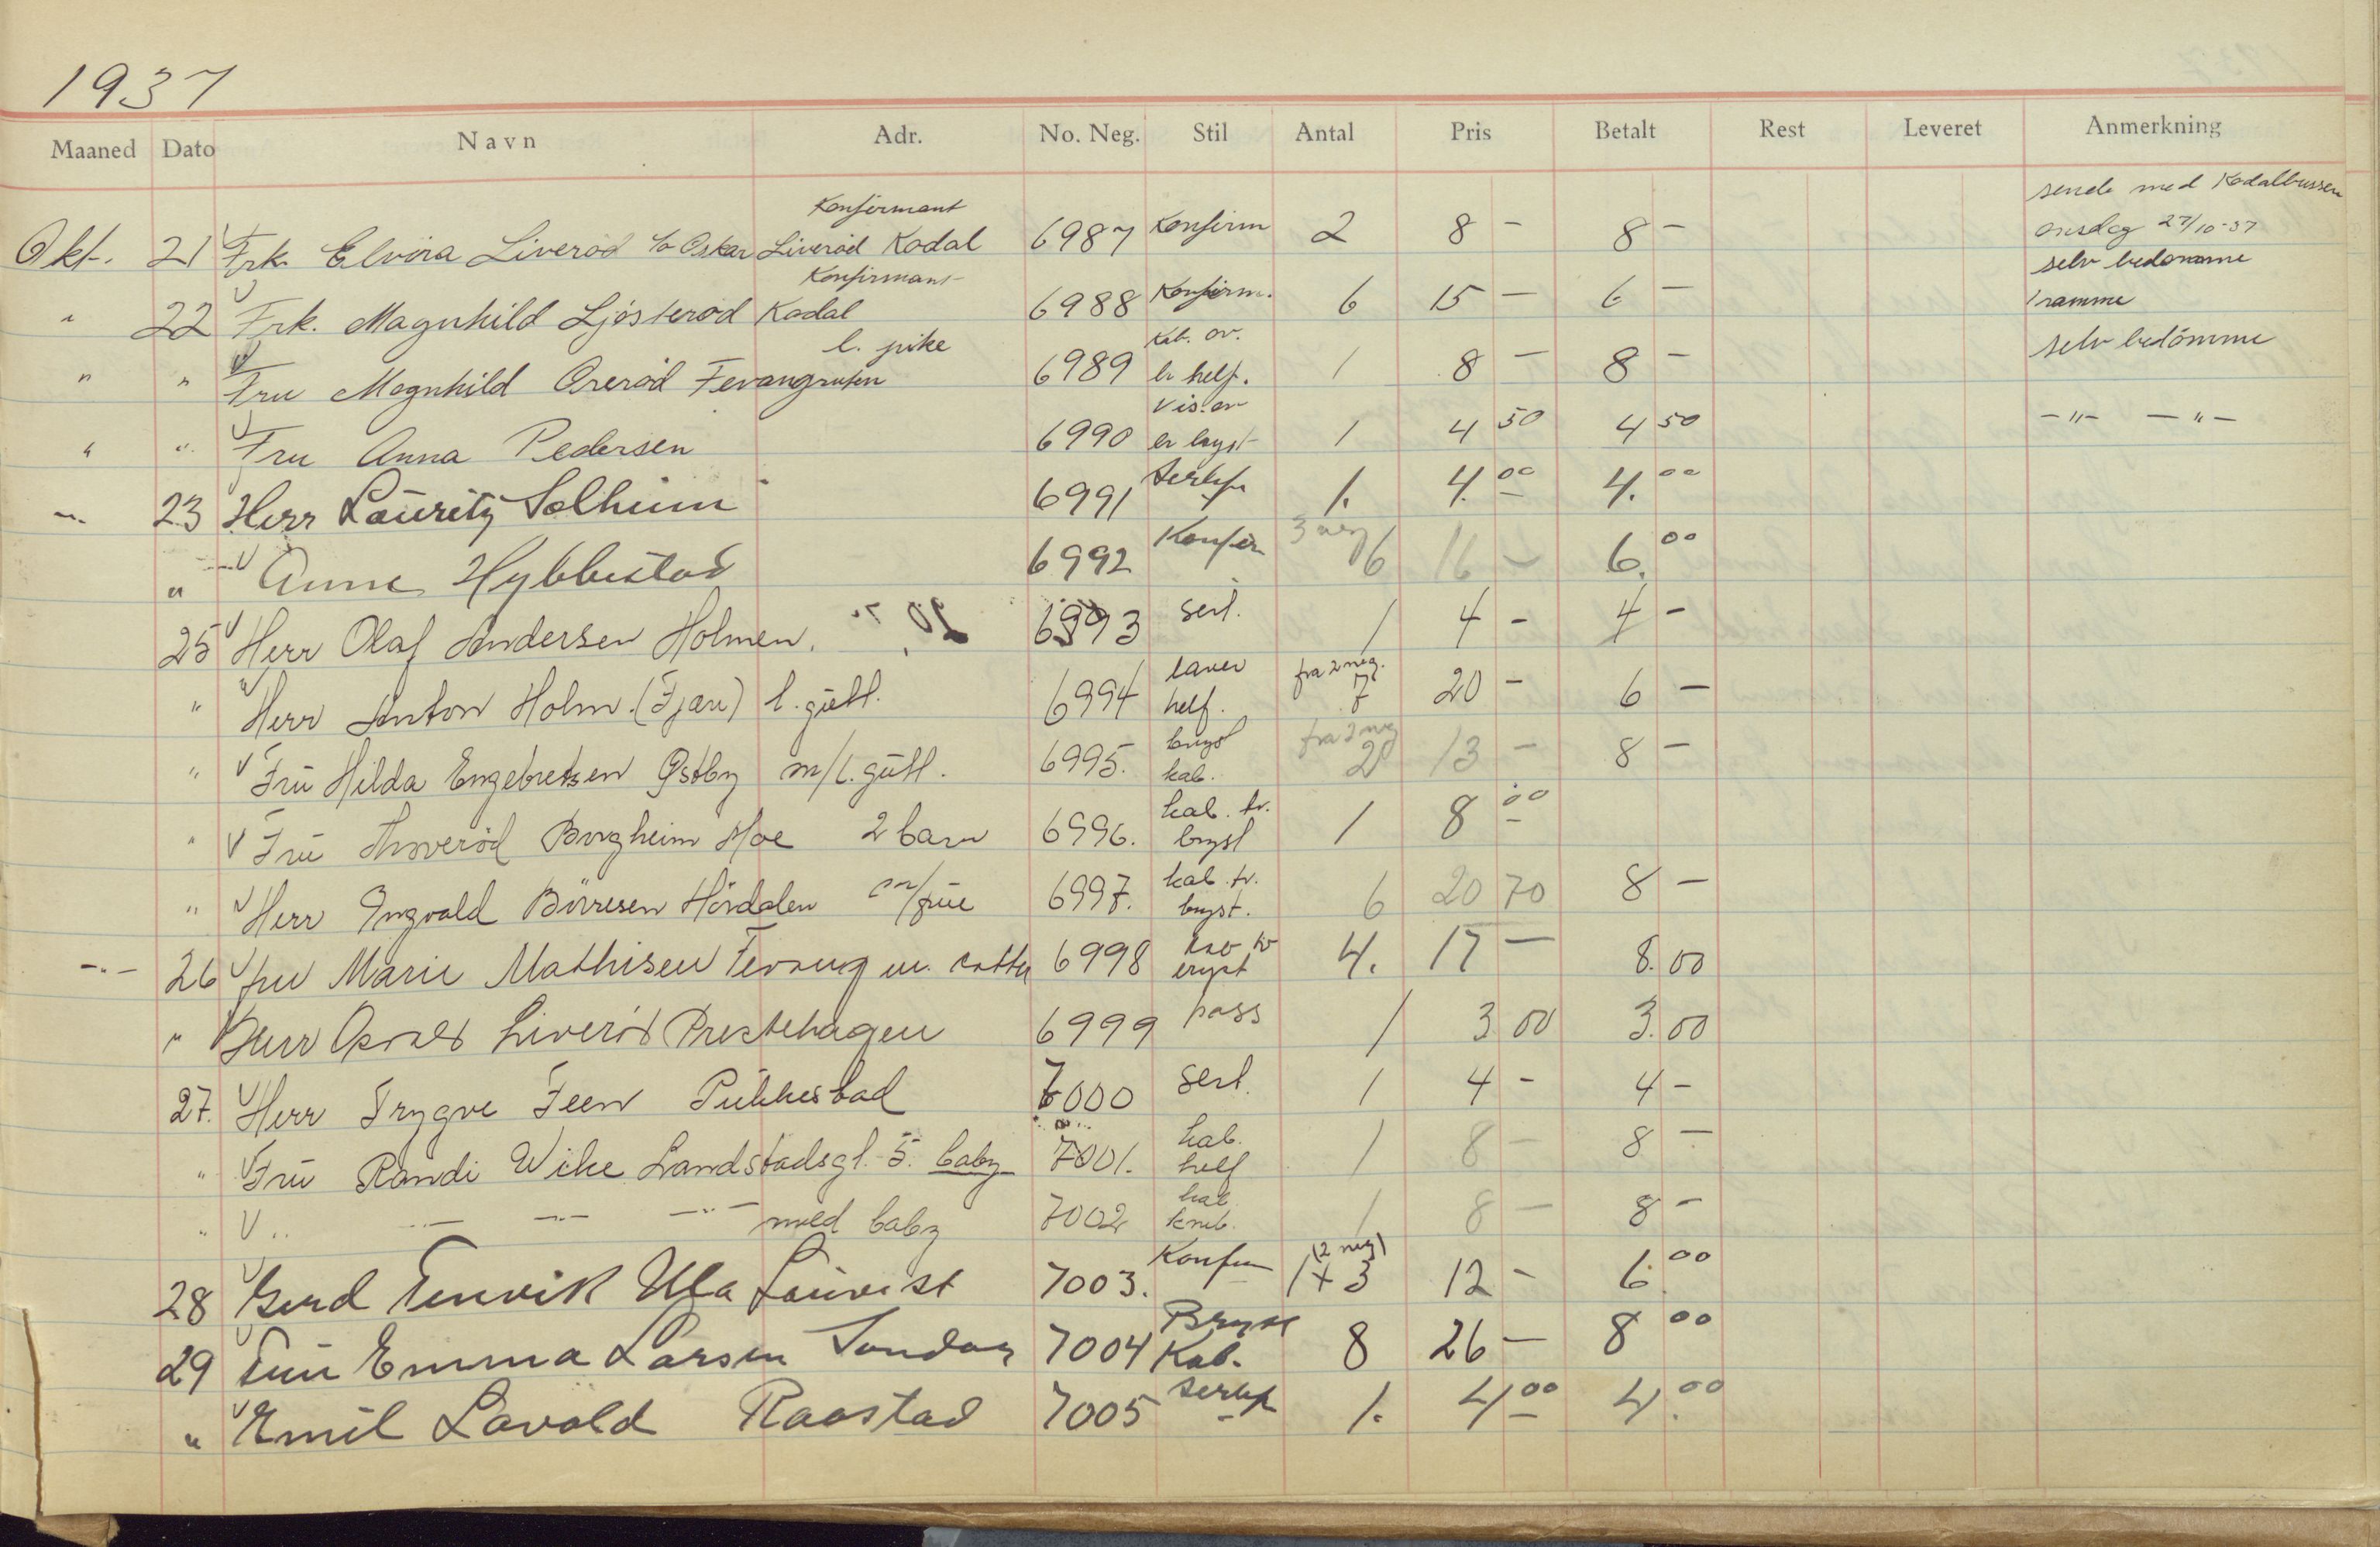 1937
Maaned Dato Navn Adr. No. Neg. Stil Antal Pris Betalt Rest Leveret Anmerkning
sende med Kodalbussen
Konfirmant
Okt. 21 Frk. Elvira Liveröd c/o Oskar Liveröd Kodal 6987 Konfirm 2 8 - 8 - onsdag 27/10-37
Konfirmant selv bedömme
" 22 Frk. Magnhild Ljösteröd Kodal 6988 Konfirm. 6 15 - 6 - 1 ramme
l. pike Kab. ov. selv bedömme
" " Fru Magnhild Oreröd Fevangruten 6989 br helf. 1 8 - 8 -
Vis. ov
" " Fru Anna Pedersen 6990 br bryst 1 4 50 4 50 -"- -"-
-"- 23 Herr Lauritz Solheim 6991 1. 4.00 4.00
3 neg
" Anne Hybbestad 6992 Konfir 6 16 - 6.00
25 Herr Olaf Andersen Holmen. 6993 sert. 1 4 - 4 -
fra 2 neg.
" Herr Anton Holm. (Fjære) l. gütt. 6994 helf. 7 20 - 6 -
bryst fra 2 neg
" Frü Hilda Engebretsen Østby m/l. gütt. 6995. kab. 2 13 - 8 -
kab. br.
" Frü Borgheim Moe 2 barn 6996. bryst 1 8 00
kab. br.
" Herr Ingvald Börresen Hördalen m/früe 6997. bryst. 6 20 70 8 -
-"- 26 fru Marie Mathisen Fevang m. 6998 4. 17 - 8.00
" Herr Liveröd Prestehagen 6999 pass 1 3 00 3.00
27. Herr Trygve Feen Pükkestad 7000 sert. 1 4 - 4 -
kab.
" Frü Randi Wike Landstadsgt. 5. baby 7001. helf 1 8 - 8 -
kab
" " -"- -"- -"- med baby 7002 kneb. 1 8 - 8 -
(2 neg)
28 Gerd Tenvik Ula 7003. Konfirm 1 + 3 12 - 6.00
Bryst
29 Frü Emma Larsen 7004 Kab. 8 26 - 8 00
" Emil Lavold Raastad 7005 1. 4 00 4.00